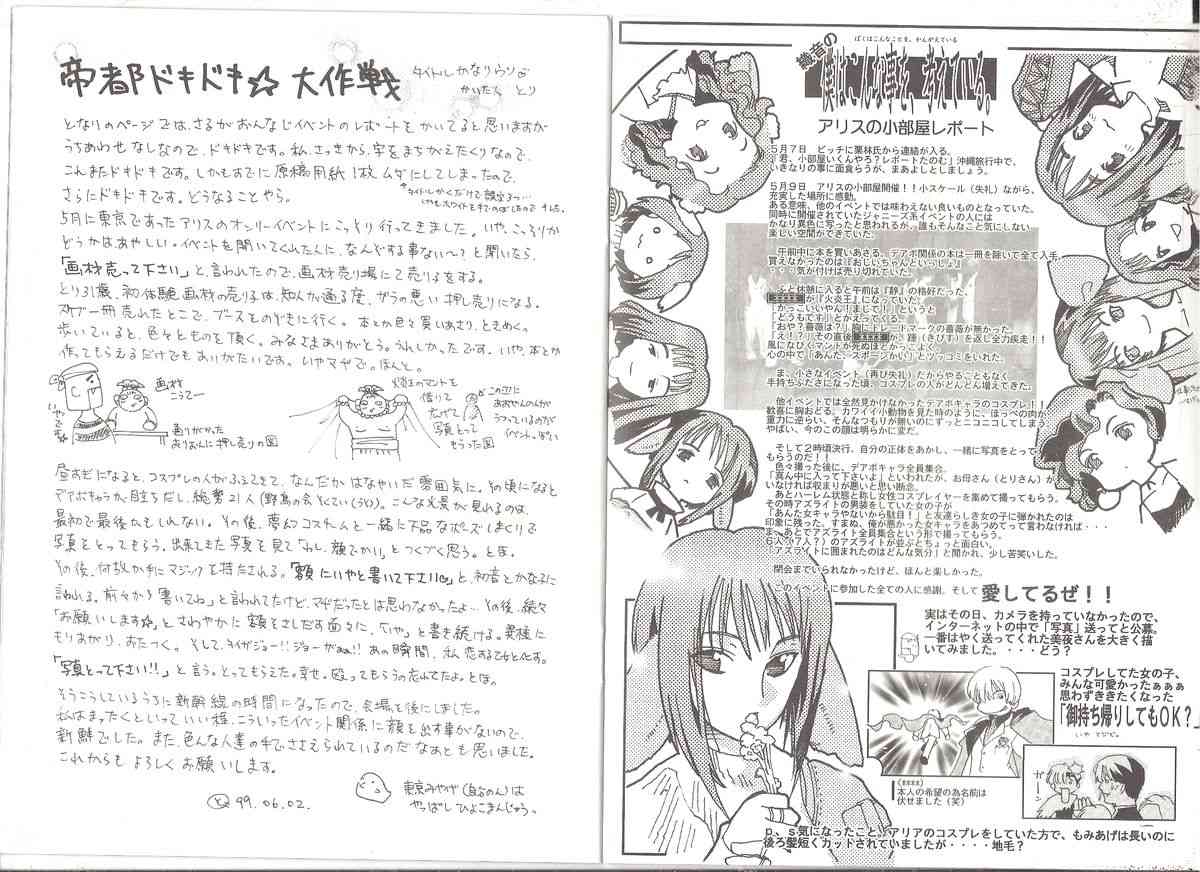 帝都ドキドキ☆大作戦
タイトルかなりウソ
かいた人 とり
となりのページでは、さるがおんなじイベントのレポートをかいてると思いますが
うちあわせなしなので、ドキドキです。私、さっきから、字をまちがえたくりなので、
これまたドキドキです。しかもすでに原稿用紙1枚ムダにしてしまったので、
さらにドキドキです。どうなることやら。
5月に東京であったアリスのオンリーイベントにこっそり行ってきました。いや、こっそりか
どうかはあやしい。イベントを開いてくれた人に、なんかする事ない〜?と聞いたら、
「画材売って下さい」と、言われたので、画材売り場にて売り子をする。
とり31歳、初体験画材の売り子は、知人が通る度、ガラの悪い押し売りになる。
スケブ一冊売れたとこで、ブースをのぞきに行く。本とか色々買いあさり、ときめく。
歩いていると、色々とものを頂く。みなさまありがとう。うれしかったです。いや、本とか
作ってもらえるだけでもありがたいです。いやマヂで。ほんと。
画材
こうてー
いやです
通りがかった
おりおんに押し売りの図
炎王のマントを
借りて
広げて
写真とって
もらった図
昼すぎになると、コスプレの人がふえてきて、なんだかはなやいだ雰囲気に。その頃になると
デアボキャラが目立ちだし、総勢21人
こんな光景が見れるのは、
最初で最後かもしれない。その後、夢幻コスチームと一緒に下品なポーズしまくりで
写真をとってもらう。出来てきた写真を見て「わし、顔でかい」とつくづく思う。とほ。
その後、何故か手にマジックを持たされる。「額にいやと書いて下さい」と、初音とかな子に
言われる。前々から「書いてね」と言われてたけど、マヂだったとは思わなかったよ…その後、続々
「お願いします」とさわやかに額をさしだす面々に、「いや」と書き続ける。異様に
もりあがり、おたつく。そして、タイガジョー!!ジョーがぁぁ!!あの瞬間、私恋する乙女と化す。
「写真とって下さい!!」と言う。とってもらえた。幸せ。殴ってもらうの忘れてたよ。とほ。
そうこうしているうちに新幹線の時間になったので、会場を後にしました。
私はまったくといっていい程、こういったイベント関係に顔を出す事がないので、
新鮮でした。また、色んな人達の手でささえられているのだなぁとも思いました。
これからも よろしくお願いします。
99.06.02.
東京みやげ(自分のん)は
やっぱし ひよこまんじゅう。
ぼくはこんなことを、かんがえている
僕はこんな事を、考えている。
アリスの小部屋レポート
5月7日 ピッチに栗林氏から連絡が入る。
「君、小部屋いくんやろ?レポートたのむ」沖縄旅行中で、
いきなりの事に面食らうが、まあよしとしましょう。
5月9日 アリスの小部屋開催!!小スケール(失礼)ながら、
充実した場所に感動。
ある意味、他のイベントでは味わえない良いものとなっていた。
同時に開催されていたジャニーズ系イベントの人には
かなり異色に写ったと思われるが、誰もそんなこと気にしない
楽しい空間ができていた。
午前中に本を買いあさる、デアボ関係の本は一冊を除いて全て入手。
買えなかったのは『おじいちゃんといっしょ』
・・・気が付けば売り切れていた。
ふと休憩に入ると午前は『静』の格好だった。
が『火炎王』になっていた。
「かっこいいやん!まじで!」というと
「どうもです」とかえってくる。
「おや?薔薇は?」胸にトレードマークの薔薇が無かった。
「え!?」その直後
が、踵(きびす)を返し全力疾走!!
風になびくマントが死ぬほどかっこよく、
心の中で「あんた、スポーンかい」とツッコミをいれた。
ま、小さなイベント(再び失礼)だからやることもなく
手持ちぶたさになった頃、コスプレの人がどんどん増えてきた。
他イベントでは全然見かけなかったデアボキャラのコスプレ!!
歓喜に胸おどる。カワイイ小動物を見た時のように、ほっぺの肉が
重力に逆らい。そんなつもりが無いのにずっとニコニコしてしまう。
やばい、今のこの顔は明らかに変だ。
そして2時頃決行、自分の正体をあかし、一緒に写真をとって
もらうのだ!!
色々撮った後に、デアボキャラ全員集合。
「真ん中に入って下さいよ」といわれたが、お母さん(とりさん)が
いなければ収まりが悪いと思い断念。
あとハーレム状態と称し女性コスプレイヤーを集めて撮ってもらう。
その時アズライトの男装をしていた女の子が
「あんた女キャラやないから駄目!」と友達らしき女の子に弾かれたのは
印象に残った。すまぬ、俺が悪かった女キャラをあつめてって言わなければ・・・
ま、あとでアズライト全員集合という形で撮ってもらう。
6人(7人?)のアズライトが並ぶとちょっと面白い。
「アズライトに囲まれたのはどんな気分」と聞かれ、少し苦笑いした。
閉会までいられなかったけど、ほんと楽しかった。
このイベントに参加した全ての人に感謝、そして 愛してるぜ!!
実はその日、カメラを持っていなかったので、
インターネットの中で「写真」送ってと公募。
一番はやく送ってくれた美夜さんを大きく描
いてみました。・・・・どう?
コスプレしてた女の子、
みんな可愛かったぁぁぁ
思わずききたくなった
「御持ち帰りしてもOK?」
いや マジで。
本人の希望の為名前は
伏せました(笑)
ガーン
p、s気になったこと、アリアのコスプレをしていた方で、もみあげは長いのに
後ろ髪短くカットされていましたが・・・・地毛?